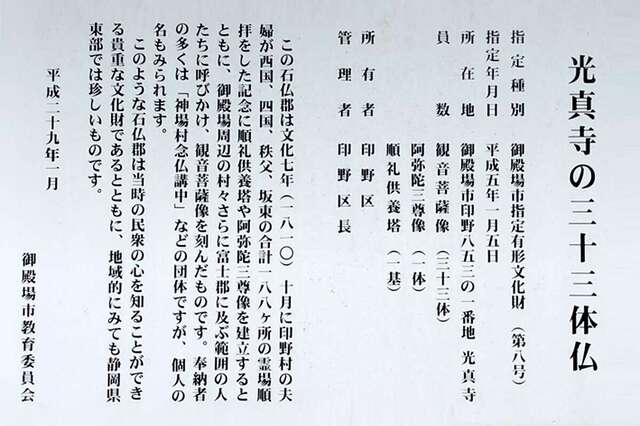 光真寺の三十三体仏
指定種別　御殿場市指定有形文化財　（第八号）
指定年月日　平成五年一月五日
所在地　御殿場市印野八五三の一番地　光真寺
員数　観音菩薩像　（三十三体）
阿弥陀三尊像　（一体）
順礼供養塔　（一基）
所有者　印野区
管理者　印野区長
この石仏郡は文化七年（一八一〇）十月に印野村の夫
婦が西国、四国、秩父、坂東の合計一八八ヶ所の霊場順
拝をした記念に順礼供養塔や阿弥陀三尊像を建立すると
ともに、御殿場周辺の村々さらに富士郡に及ぶ範囲の人
たちに呼びかけ、観音菩薩像を刻んだものです。奉納者
の多くは「神場村念仏講中」などの団体ですが、個人の
名もみられます。
このような石仏郡は当時の民衆の心を知ることができ
る貴重な文化財であるとともに、地域的にみても静岡県
東部では珍しいものです。
平成二十九年一月
御殿場市教育委員会